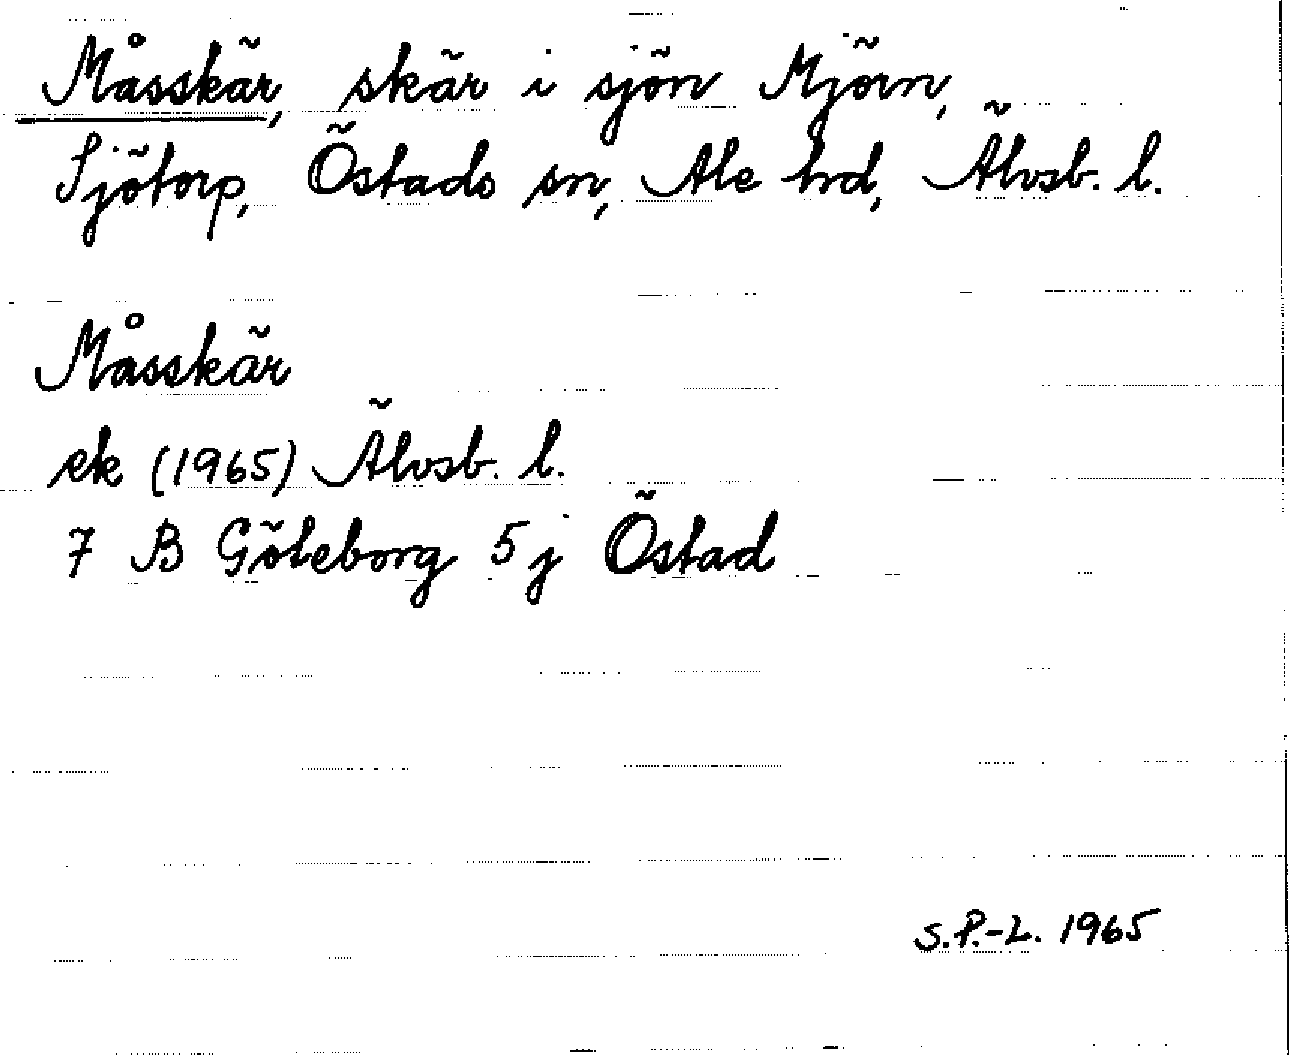 Måsskär, skär i sjön Mjörn,
Sjötorp, Östads sn, Ale hrd, Älvsb. l.
Måsskär
ek (1965) Älvsb. l.
7 B Göteborg 5 j Östad
S.P.-L. 1965